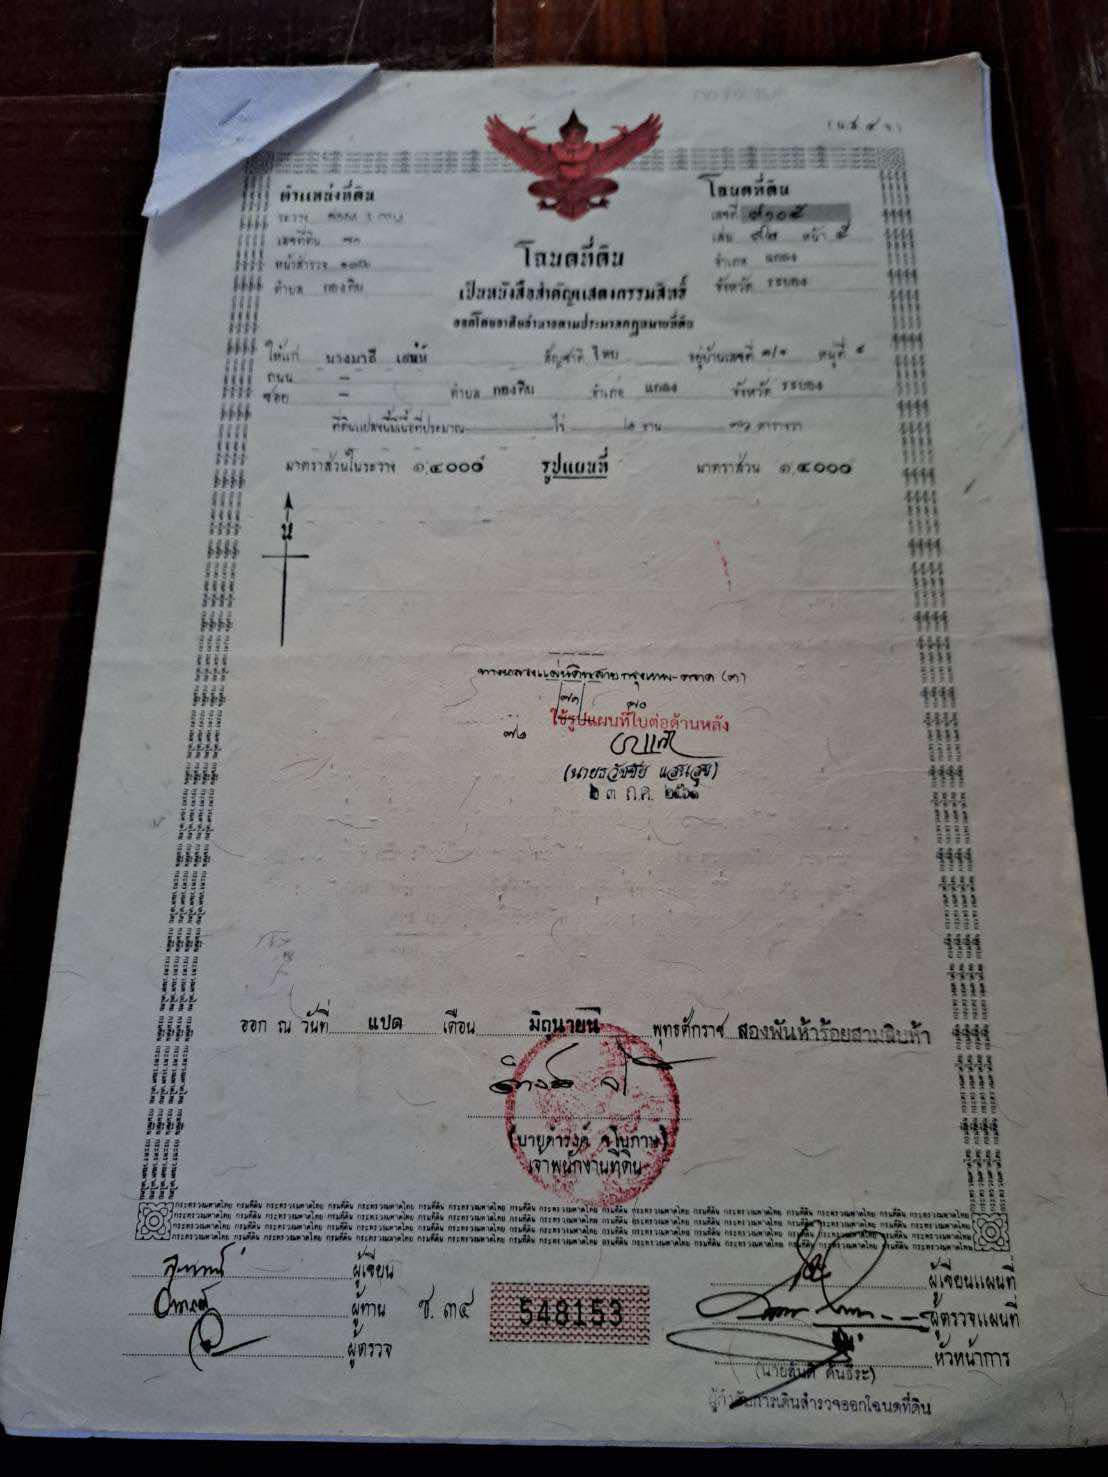 (น.ส. ๔ จ)
ตำแหน่งที่ดิน
ระวาง
เลขที่ดิน ๗๑
หน้าสำรวจ
ตำบล กองดิน
โฉนดที่ดิน
เลขที่ ๙๑๐๕
เล่ม ๙๒ หน้า ๕
อำเภอ แกลง
จังหวัด ระยอง
โฉนดที่ดิน
เป็นหนังสือสำคัญแสดงกรรมสิทธิ์
ออกโดยอาศัยอำนาจตามประมวลกฎหมายที่ดิน
ให้แก่ นางมาลี เสน่ห์ สัญชาติ ไทย อยู่บ้านเลขที่ ๓/๑ หมู่ที่ ๕
ถนน –
ซอย – ตำบล กองดิน อำเภอ แกลง จังหวัด ระยอง
ที่ดินแปลงนี้มีเนื้อที่ประมาณ ไร่ ๒ งาน ๓๖ ตารางวา
มาตราส่วนในระวาง ๑:๔๐๐๐ รูปแผนที่ มาตราส่วน ๑:๔๐๐๐
น
ทางหลวงแผ่นดินสาย กรุงเทพ-ตราด (๓)
๗๑ ๗๐
ใช้รูปแผนที่ใบต่อด้านหลัง
๗๒
(นายธวัชชัย แสนสุข)
๒๓ ก.ค. ๒๕๖๑
ออก ณ วันที่ แปด เดือน มิถุนายน พุทธศักราช สองพันห้าร้อยสามสิบห้า
(นายดำรงค์ จโนภาษ)
เจ้าพนักงานที่ดิน
ผู้เขียน
ผู้ทาน
ผู้ตรวจ
ช. ๓๔
548153
ผู้เขียนแผนที่
ผู้ตรวจแผนที่
หัวหน้าการ
(นายสันติ ตันธีระ)
ผู้กำกับการเดินสำรวจออกโฉนดที่ดิน